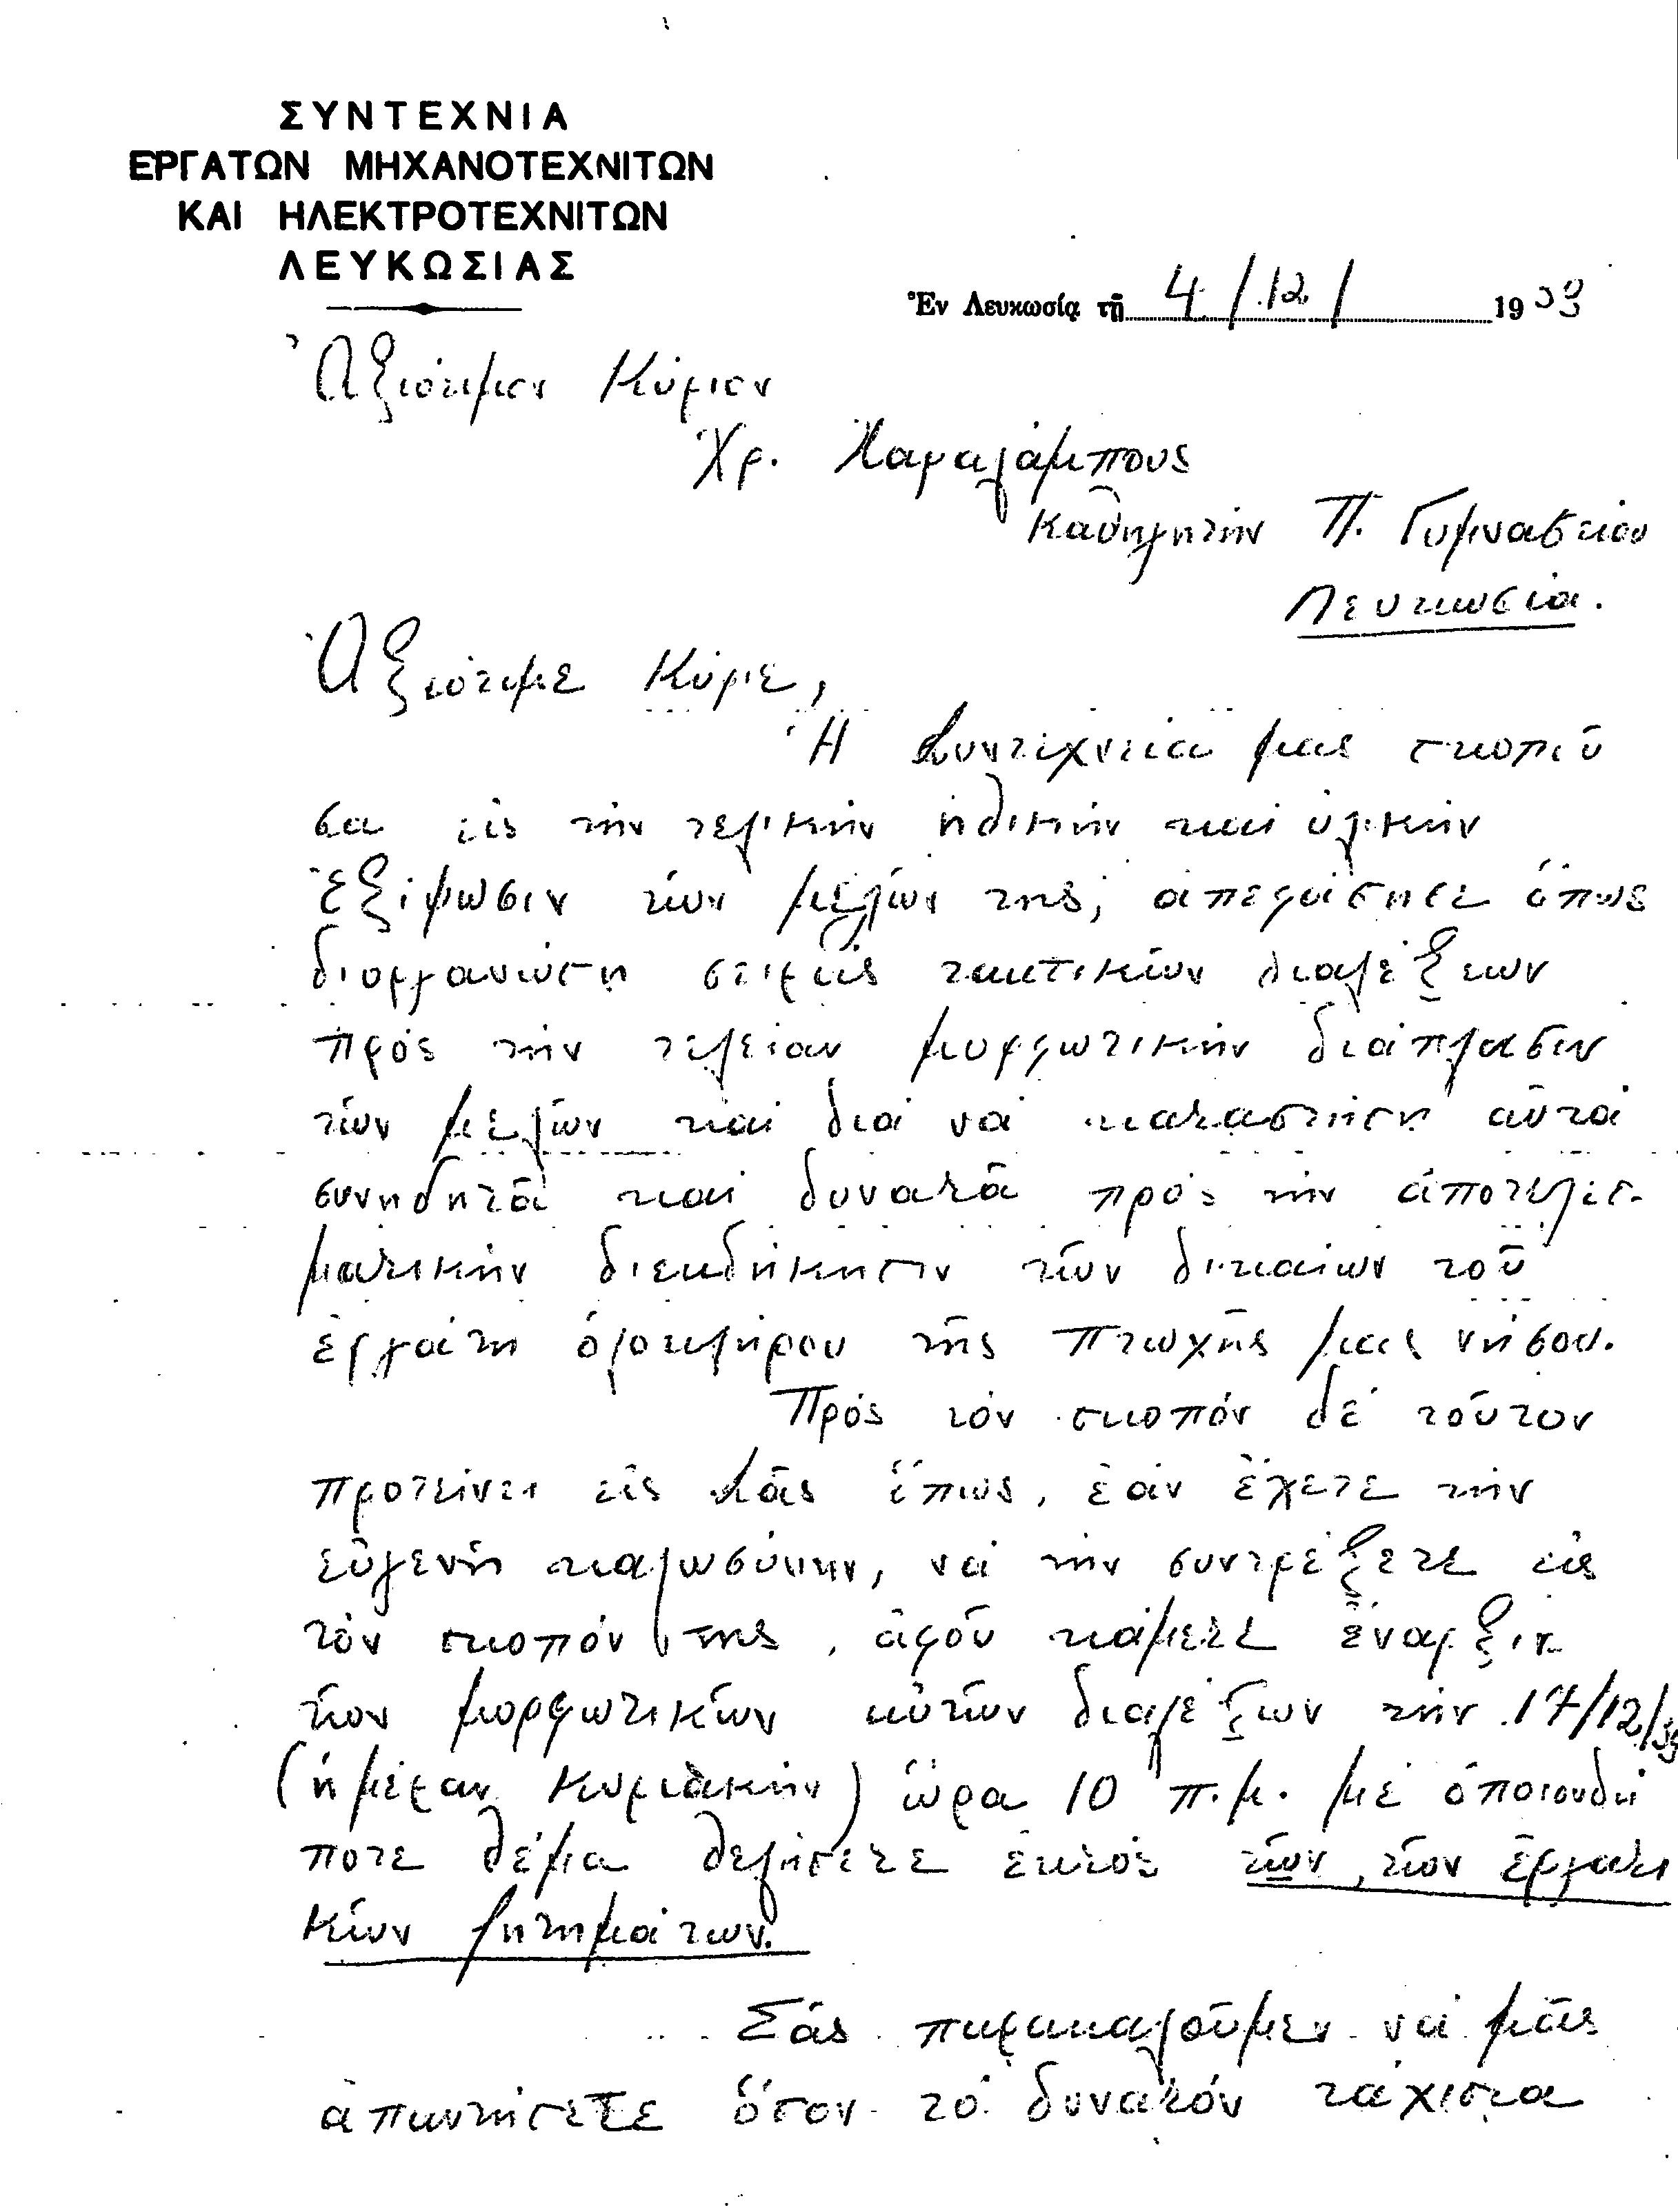 ΣΥΝΤΕΧΝΙΑ
ΕΡΓΑΤΩΝ ΜΗΧΑΝΟΤΕΧΝΙΤΩΝ
ΚΑΙ ΗΛΕΚΤΡΟΤΕΧΝΙΤΩΝ
ΛΕΥΚΩΣΙΑΣ
Ἐν Λευκωσίᾳ τῇ 4/12/ 1939
Ἀξιότιμον Κύριον
Χρ. Χαραλάμπους
Καθηγητήν Π. Γυμνασείου
Λευκωσία.
Ἀξιότιμε Κύριε,
Ἡ Συντεχνεία μας σκοποῦ
σα εἰς τήν τελικήν ἠθικήν καί ὑλικήν
ἐξύψωσιν τῶν μελῶν της, ἀπεφάσησε ὅπως
διοργανώση σειράς τακτικῶν διαλέξεων
πρός τήν τελείαν μορφωτικήν διάπλασιν
τῶν μελῶν καί διά νά καταστήση αὐτά
συνηδητά καί δυνατά πρός τήν ἀποτελεσ-
ματικήν διεκδήκησιν τῶν δικαίων τοῦ
ἐργάτη ὁλοκλήρου τῆς πτωχῆς μας νήσου.
Πρός τόν σκοπόν δέ τοῦτον
προτείνει εἰς Σᾶς ὅπως, ἐάν ἔχετε τήν
εὐγενή καλωσύνην, νά τήν συντρέξετε εἰς
τόν σκοπόν της, ἀφοῦ κάμετε ἔναρξιν
τῶν μορφωτικῶν αὐτῶν διαλέξων τήν 17/12/39
(ἡμέραν Κυριακήν) ὥρα 10 π.μ. μέ ὁποιονδή
ποτε θέμα θελήσετε ἐκτός τῶν, τῶν ἐργατι
κῶν ζητημάτων.
Σᾶς παρακαλοῦμεν νά μᾶς
ἀπαντήσετε ὅσον τό δυνατόν τάχιστα